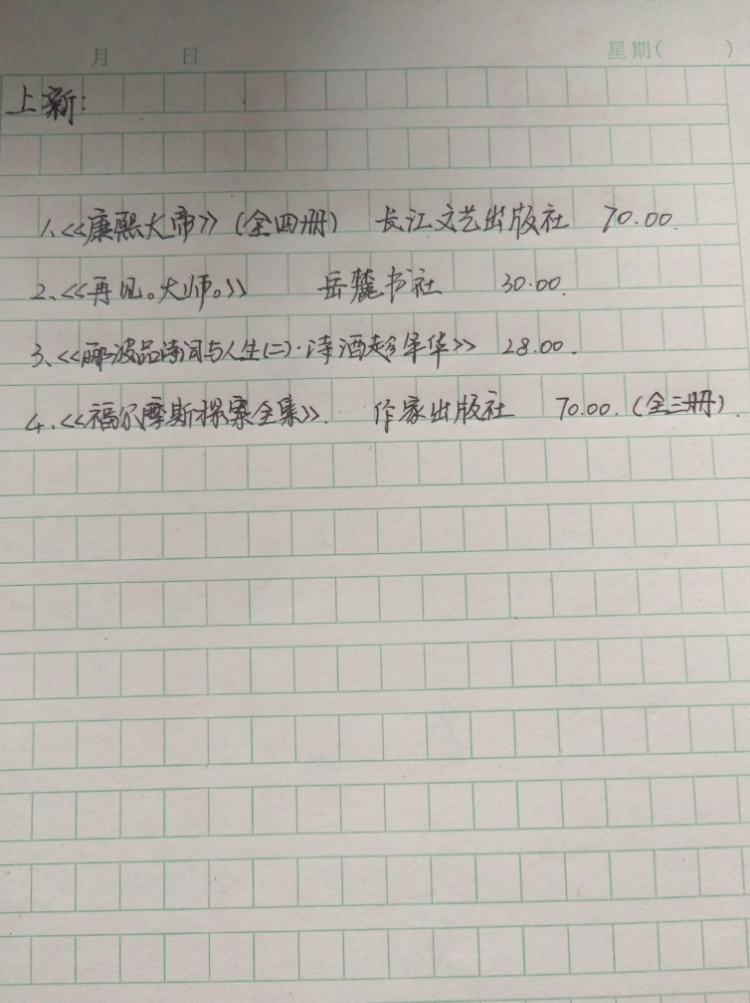 月 日 星期( )
上新:
1.《康熙大帝》(全四册) 长江文艺出版社 70.00.
2.《再见。大师。》 岳麓书社 30.00.
3.《郦波品诗词与人生(二)·诗酒趁年华》 28.00.
4.《福尔摩斯探案全集》. 作家出版社 70.00.(全三册).